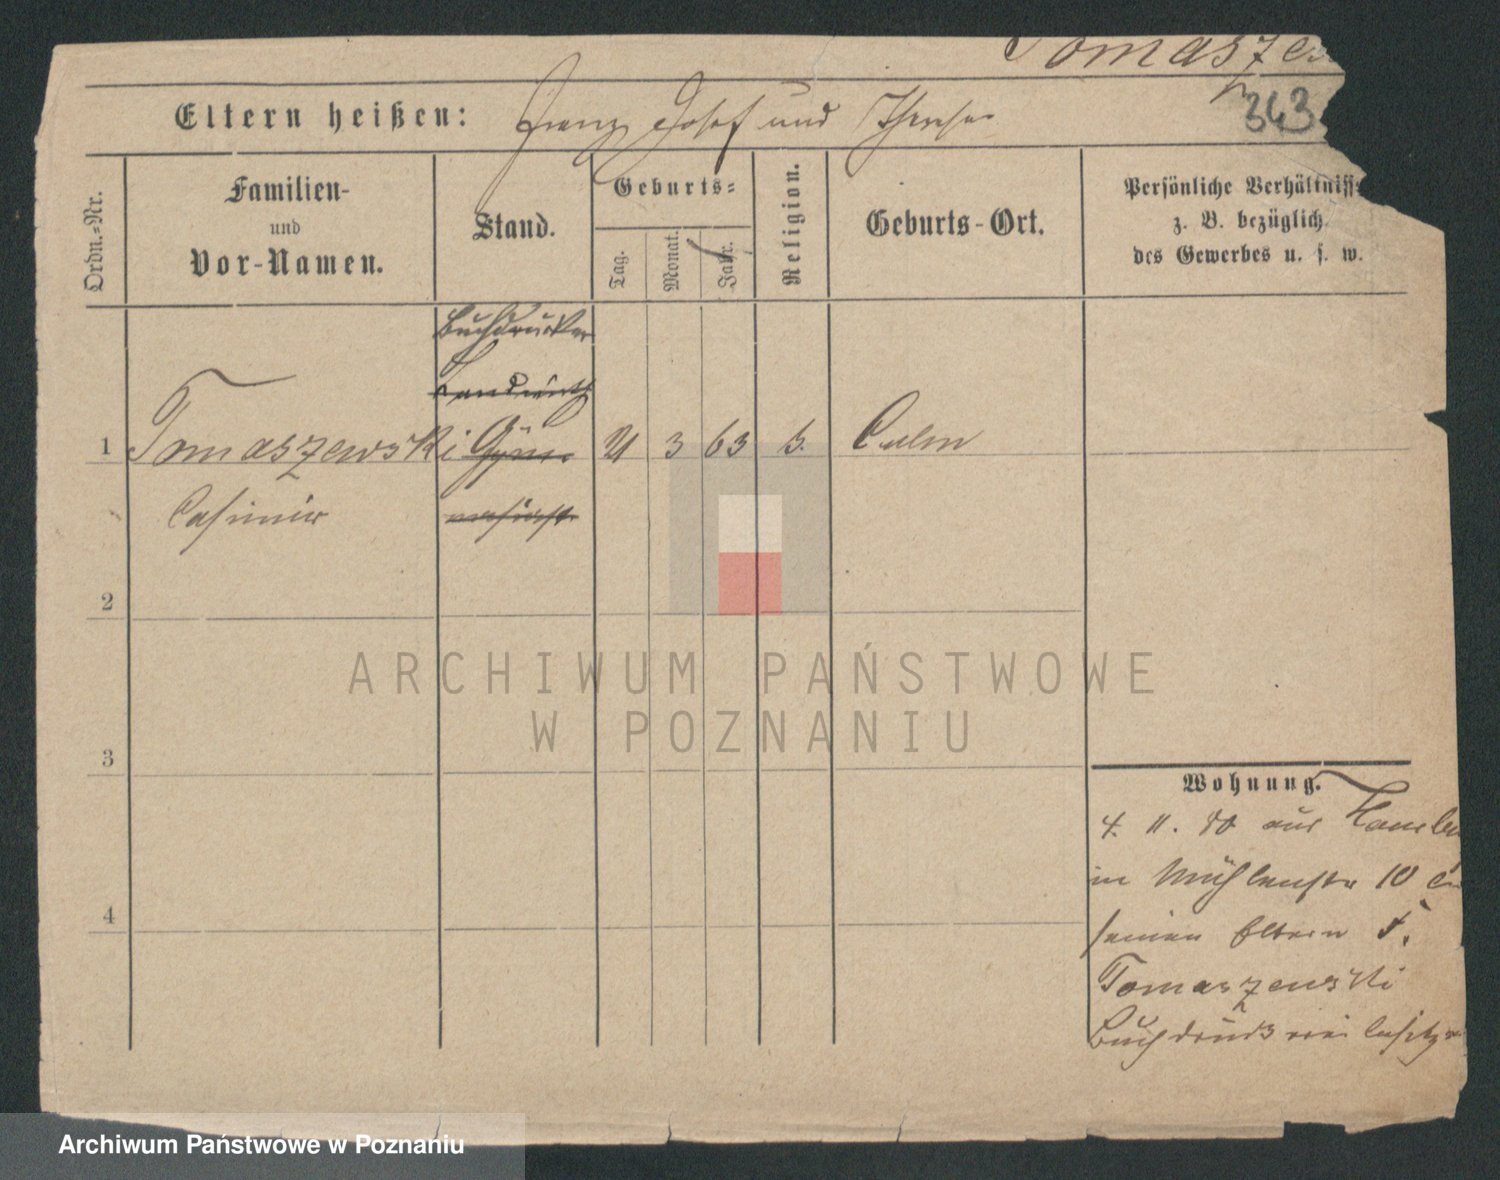 Tomaszew
343
Eltern heißen: Franz Josef und Therese
Ordn.-Nr.
Familien-
und
Vor-Namen.
Stand.
Geburts-
Tag.
Monat.
Jahr.
Religion.
Geburts-Ort.
Persönliche Verhältniss
z. B. bezüglich
des Gewerbes u. s. w.
Buchdrucker
Landwirth
1 Tomaszewski Gymn. 21 3 63 Culm
Casimir
2
3
4
Wohnung.
4. 11. 80 aus Hambu
in Mühlenstr 10 bei
seinen Eltern F.
Tomaszewski
Buchdruckereibesitzer
ARCHIWUM PAŃSTWOWE
W POZNANIU
Archiwum Państwowe w Poznaniu